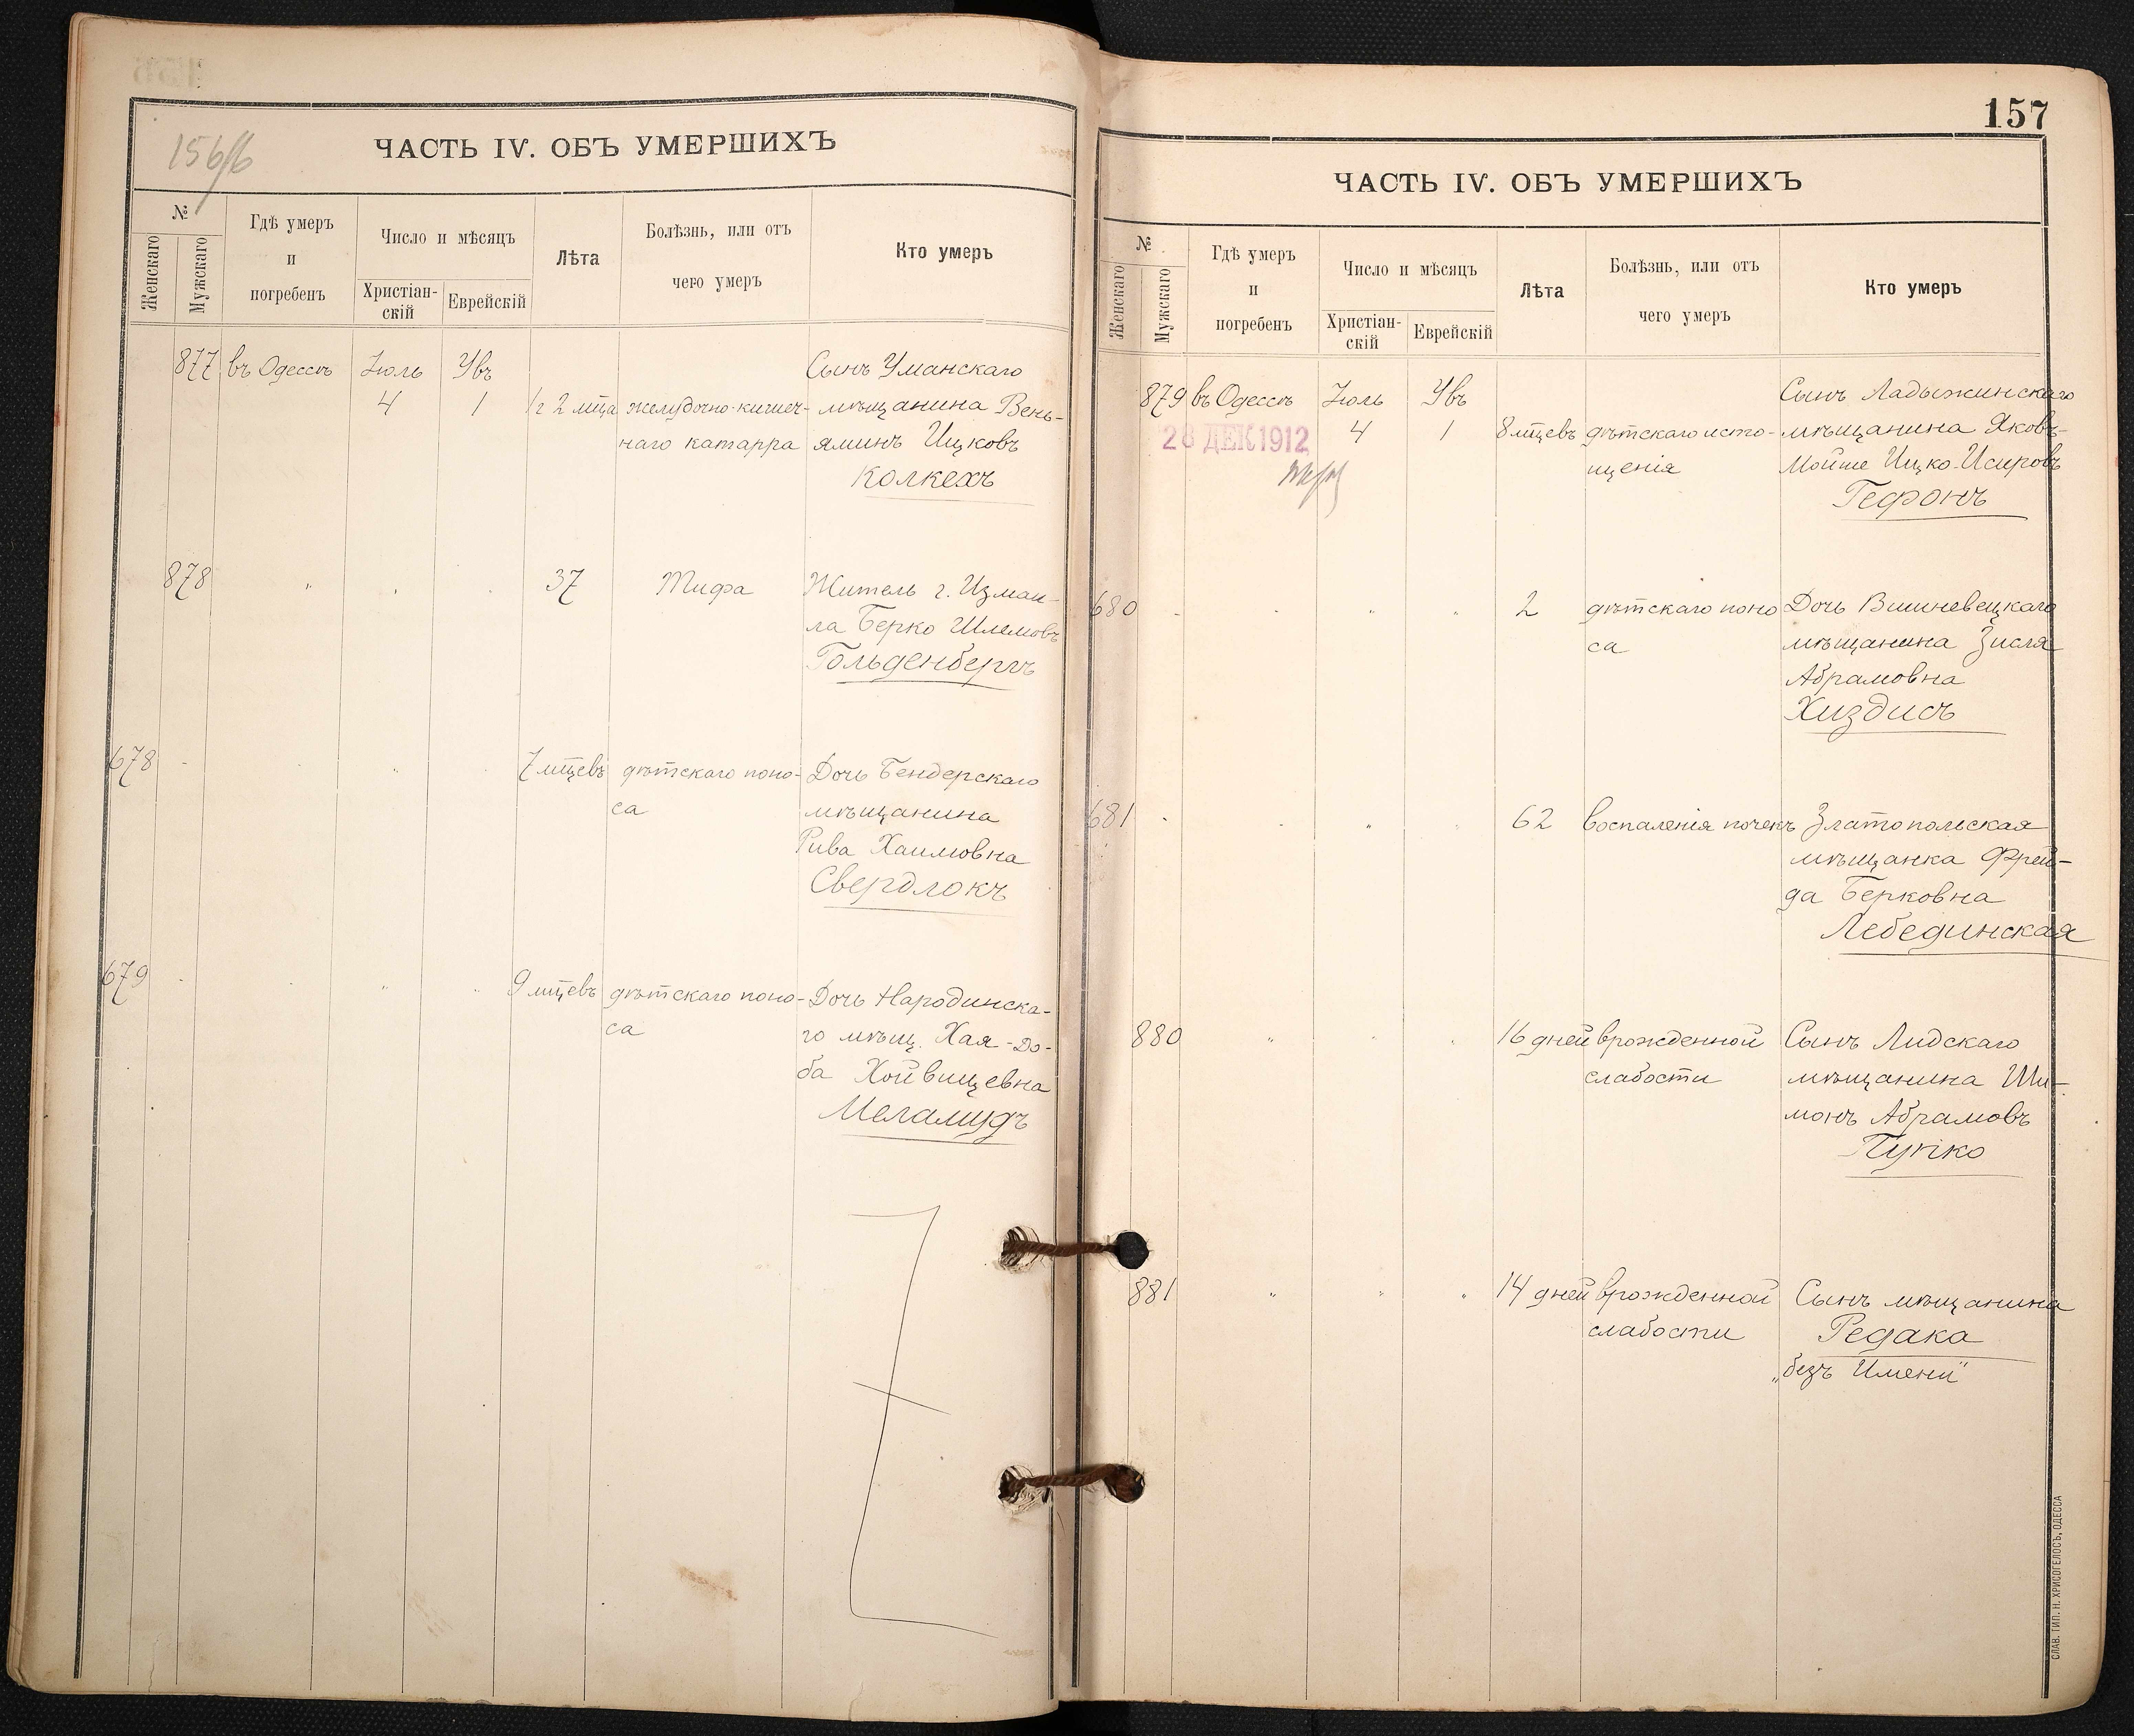 156/б
ЧАСТЬ IV. ОБЪ УМЕРШИХЪ
№
Женскаго
Мужскаго
Гдѣ умеръ
и
погребенъ
Число и мѣсяцъ
Христіан-
скій
Еврейскій
Лѣта
Болѣзнь, или отъ
чего умеръ
Кто умеръ
877 въ Одессѣ Іюль Увъ Сынъ Уманскаго
4 1 1 г 2 мца желудочно-кишеч- мѣщанина Вень-
наго катарра яминъ Ицковъ
Колкехъ
878 " " " 37 Тифа Житель г. Измаи-
ла Берко Шлемовъ
Гольденбергъ
678 " " " 7 мцевъ дѣтскаго поно- Дочь Бендерскаго
са мѣщанина
Рива Хаимовна
Свердлокъ
679 " " " 9 мцевъ дѣтскаго поно- Дочь Народинска-
са го мѣщ. Хая-До-
ба Хойвицевна
Меламудъ
157
ЧАСТЬ IV. ОБЪ УМЕРШИХЪ
№
Женскаго
Мужскаго
Гдѣ умеръ
и
погребенъ
Число и мѣсяцъ
Христіан-
скій
Еврейскій
Лѣта
Болѣзнь, или отъ
чего умеръ
Кто умеръ
879 въ Одессѣ Іюль Увъ Сынъ Ладыжинскаго
28 ДЕК 1912 4 1 8 мцевъ дѣтскаго исто- мѣщанина Яковъ-
щенія Мойше Ицко-Исировъ
Гефонъ
680 " " " 2 дѣтскаго поно Дочь Вишневецкаго
са мѣщанина Зисля
Абрамовна
Хиздисъ
681 " " " 62 воспаленія почекъ Златопольская
мѣщанка Фрей-
да Берковна
Лебединская
880 " " " 16 дней врожденной Сынъ Лидскаго
слабости мѣщанина Ши-
монъ Абрамовъ
Пупко
881 " " " 14 дней врожденной Сынъ мѣщанина
слабости Редака
„безъ Имени"
СЛАВ. ТИП. Н. ХРИСОГЕЛОСЪ, ОДЕССА